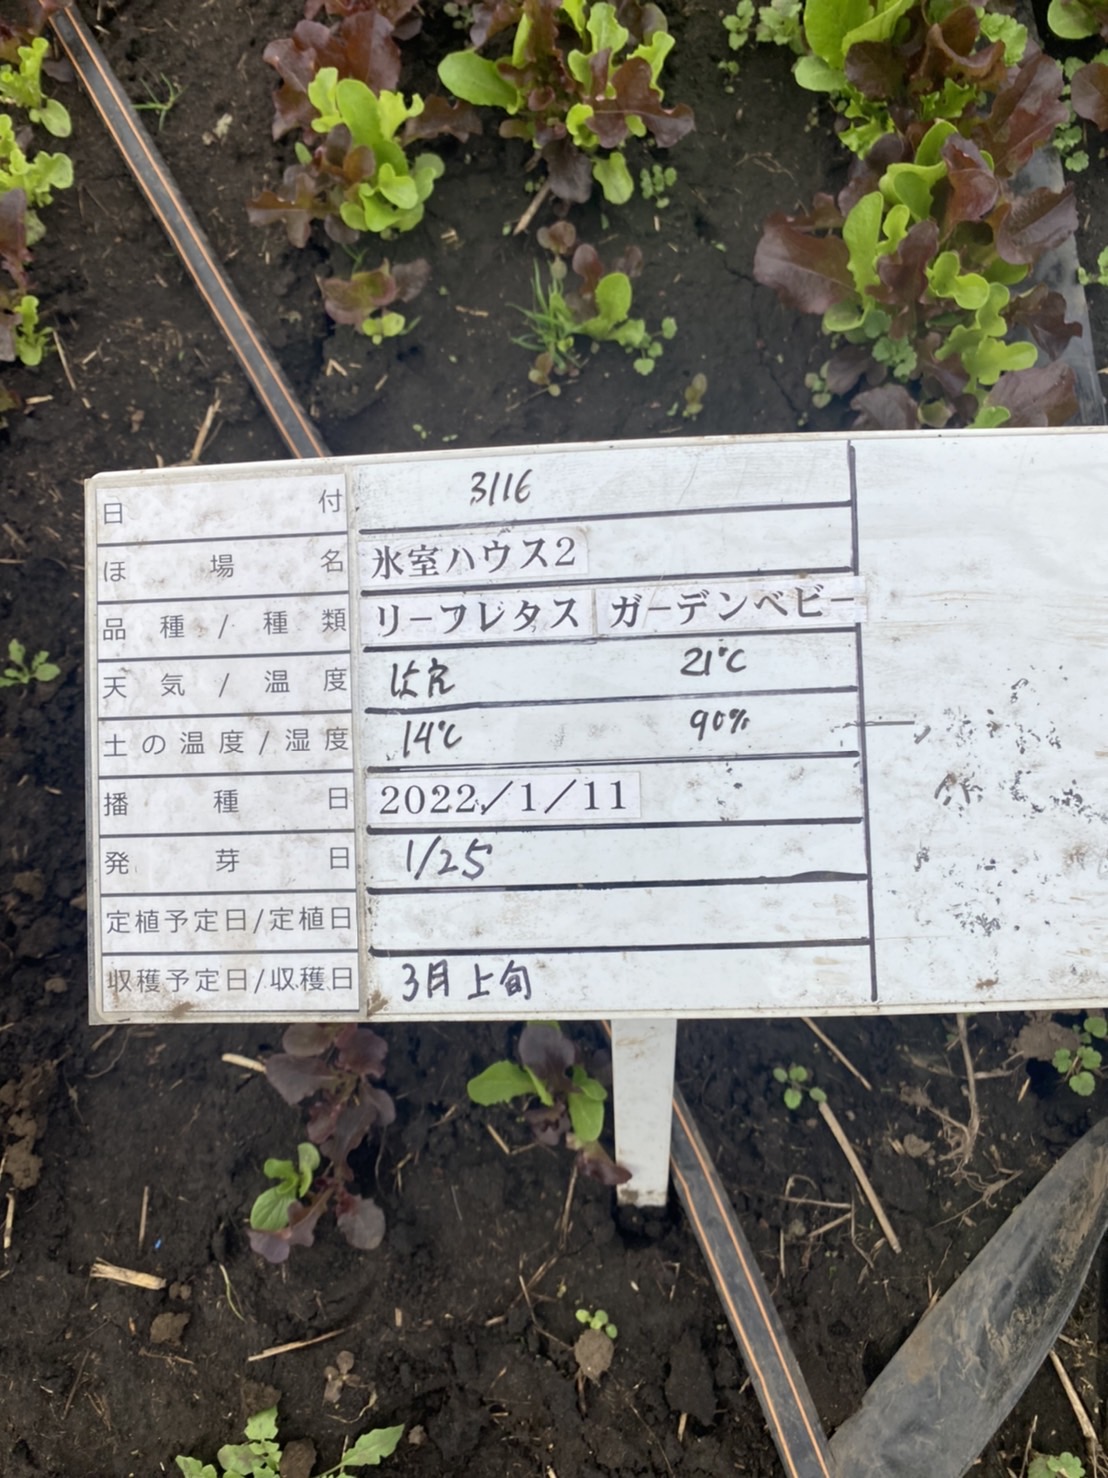 日付 3/16
ほ場名 氷室ハウス2
品種/種類 リーフレタス ガーデンベビー
天気/温度 21℃
土の温度/湿度 14℃ 90%
播種日 2022/1/11
発芽日 1/25
定植予定日/定植日
収穫予定日/収穫日 3月上旬